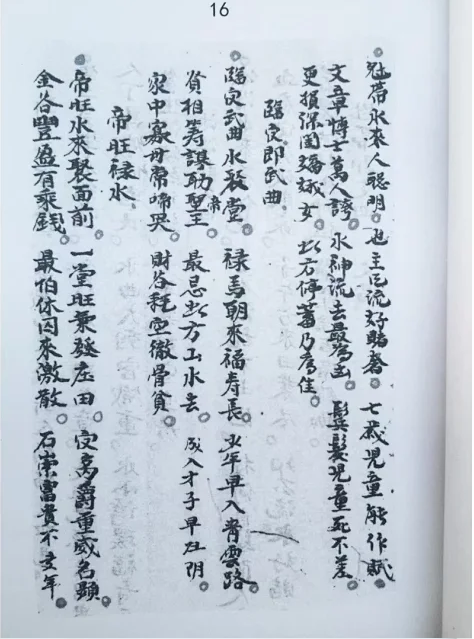 16
冠帶水來人聰明。也主风流好賭奢。七歲児童能作賦
文章博士萬人誇。水神流去最為凶。鬓髮児童死不差
更損深闺嬌娥女。此方停蓄乃為佳。
臨官即武曲。
臨官武曲水聚堂。禄馬朝來福寿長。少年早入青雲路。
贤相籌謀助聖王。最忌此方山水去。成人才子早归阴
家中寡母常啼哭。財谷耗空徹骨貧。
帝旺禄水。
帝旺水來聚面前。一堂旺氣發庄田。官高爵重威名顯。
金谷豐盈有乘錢。最怕休囚來激散。石崇富貴不多年。